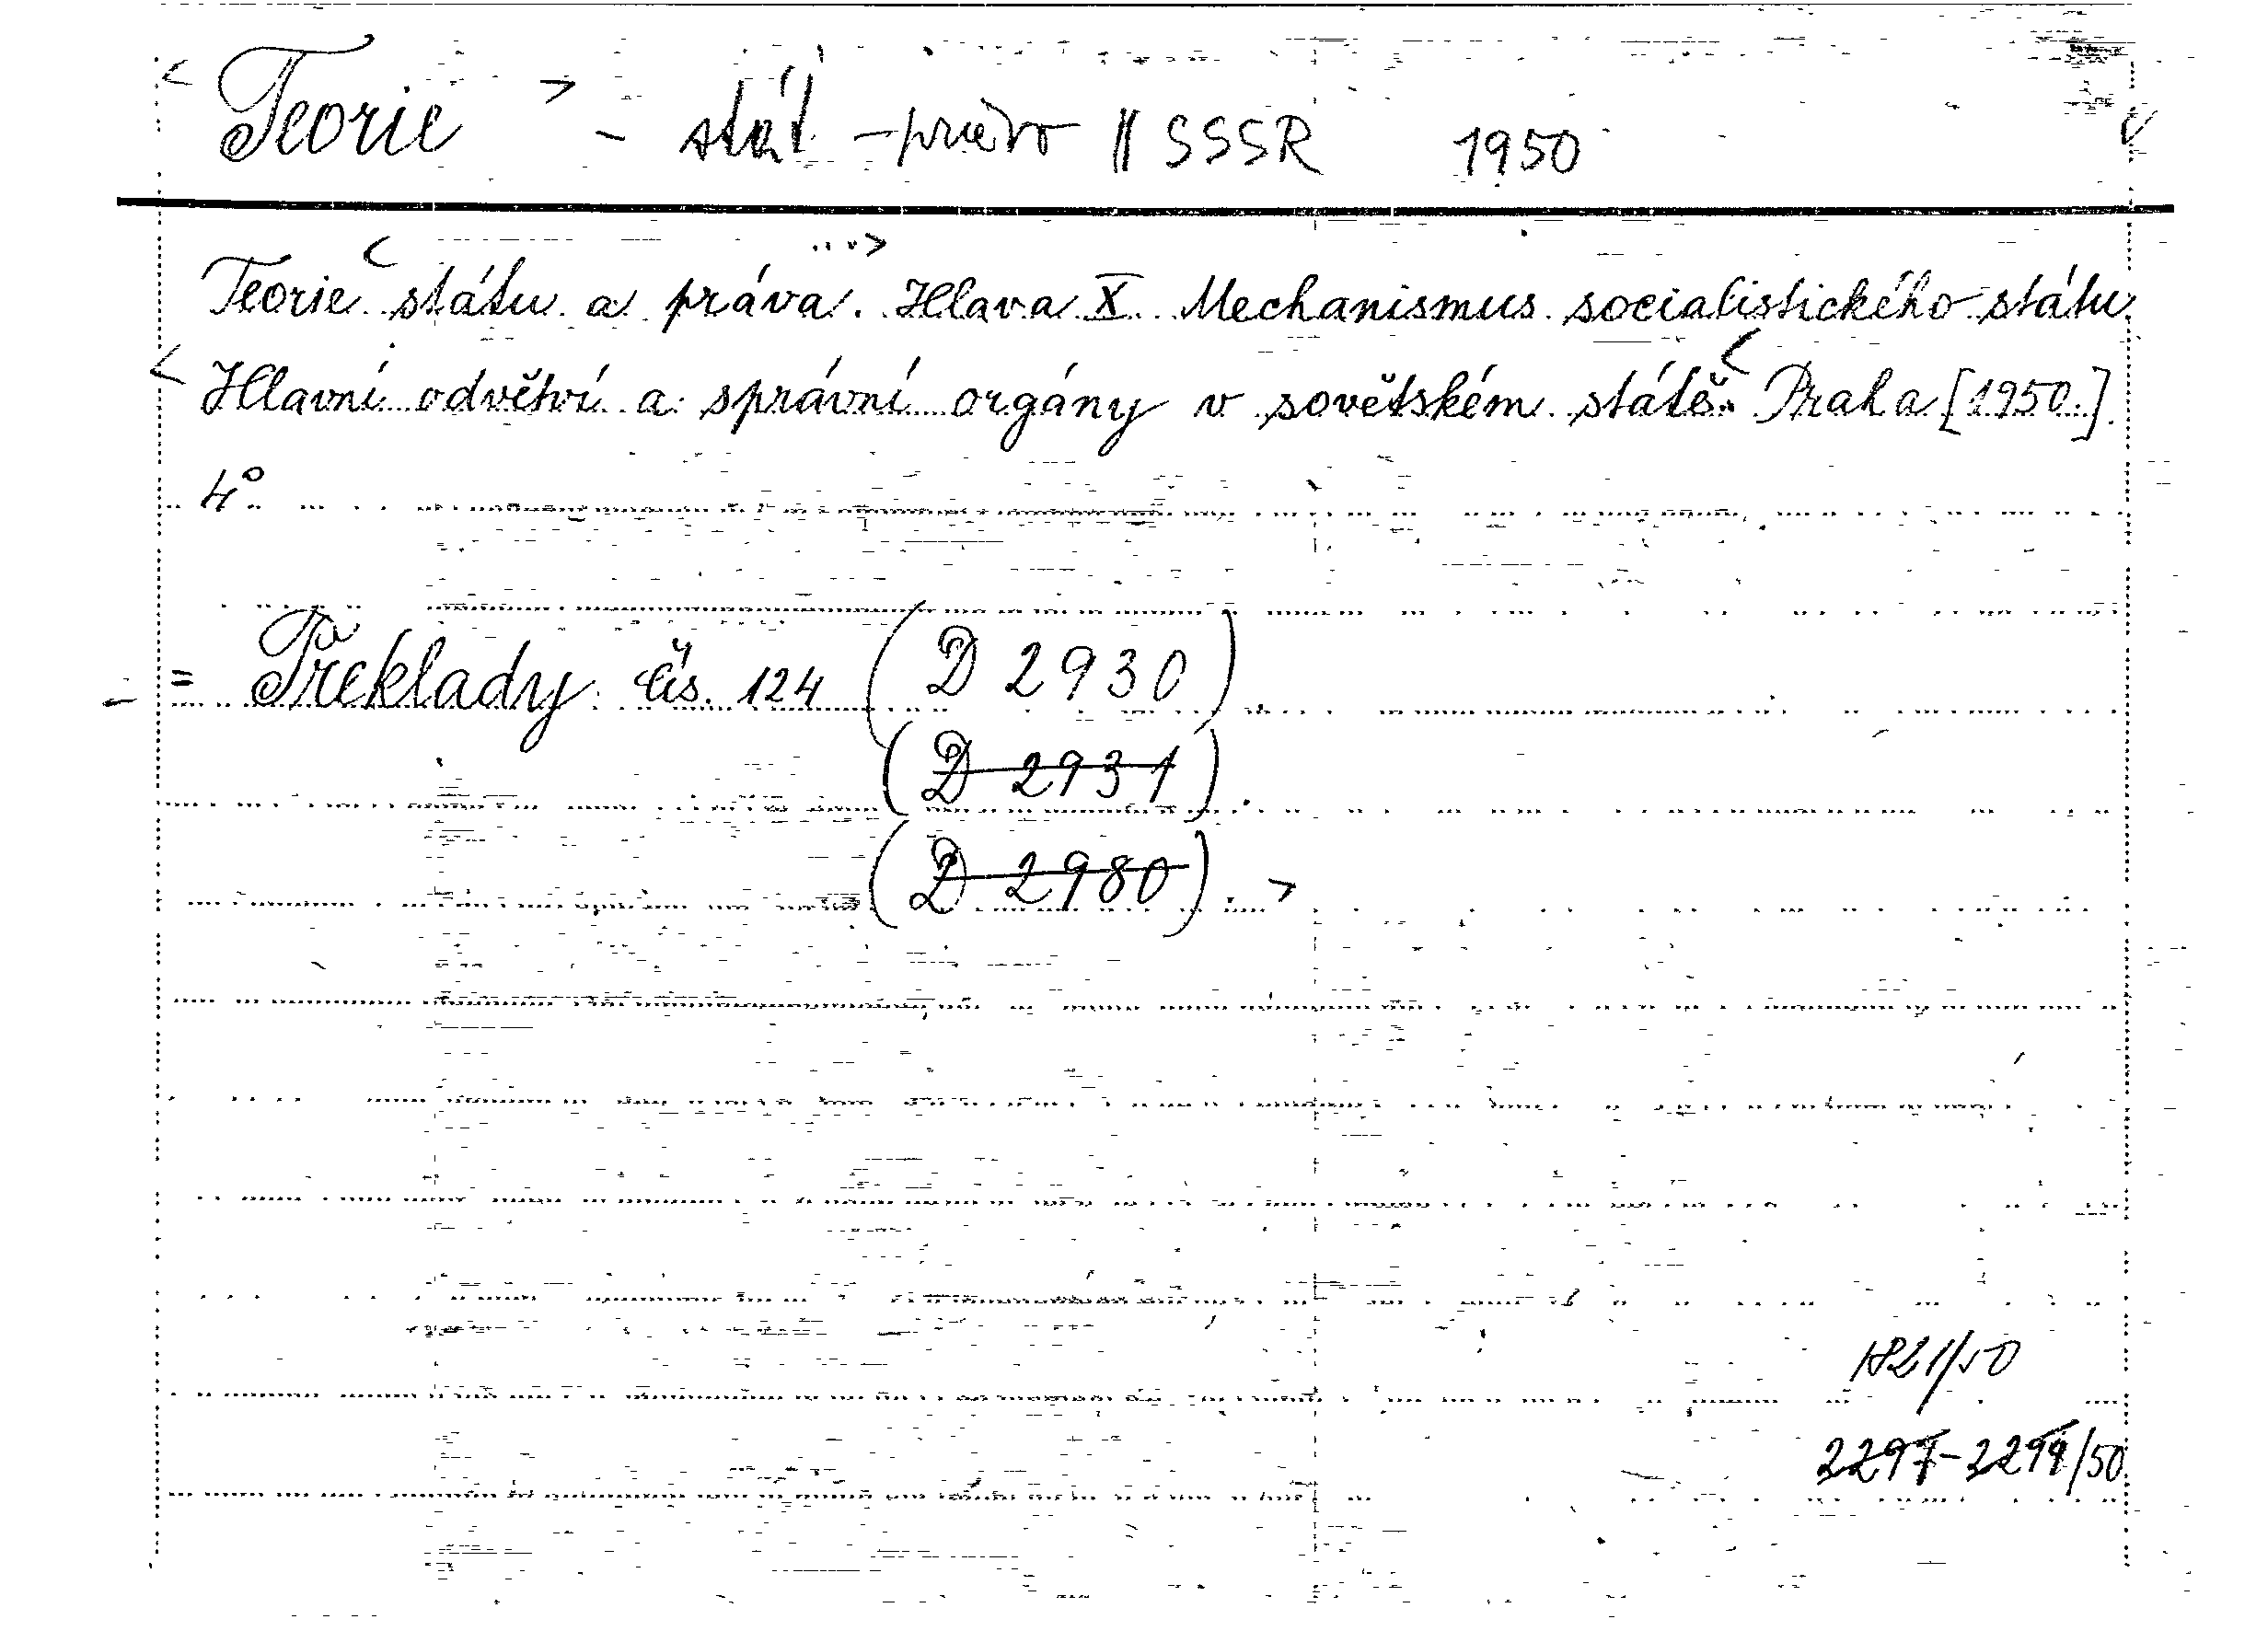 < Teorie > - stát - právo || SSSR 1950
Teorie státu a práva. Hlava X. Mechanismus socialistického státu.
Hlavní odvětví a správní orgány v sovětském státě. Praha [1950.].
4°
= Překlady čís. 124 (D 2930).
(D 2931).
(D 2980).
1821/50
2297-2299/50